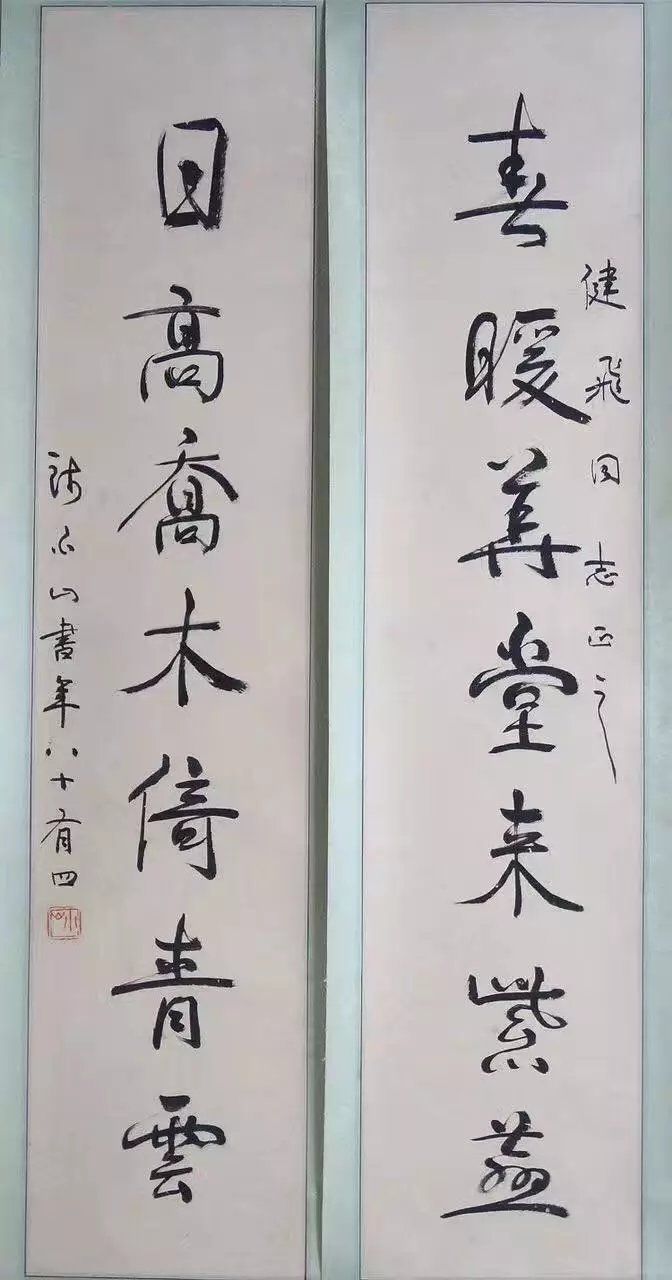 健飛同志正之
春暖華堂来紫燕
日高喬木倚青雲
山書年八十有四